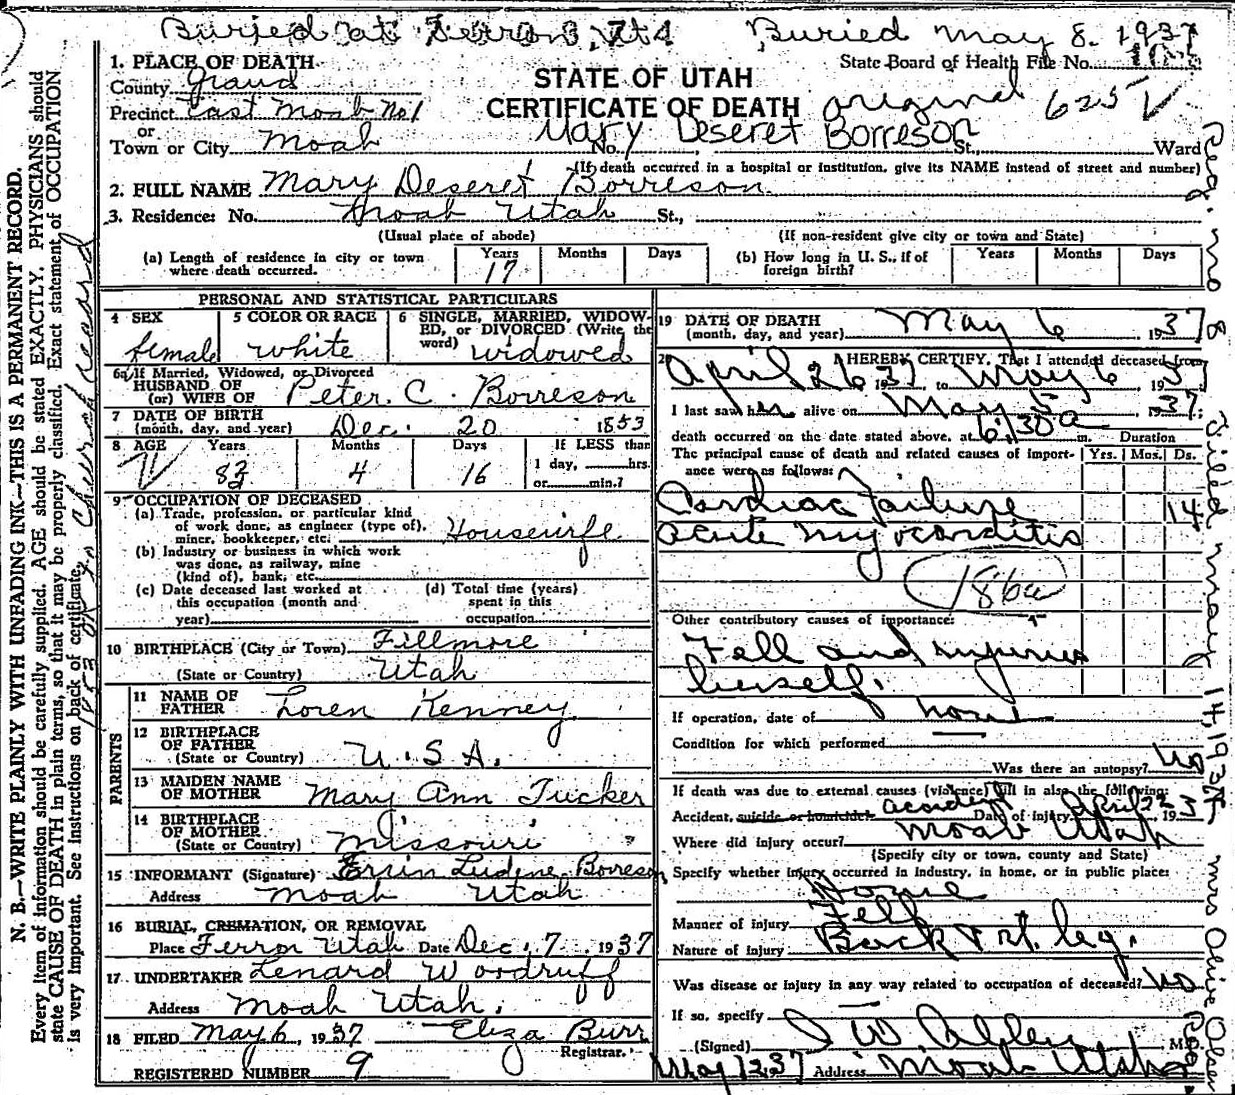 Buried at Ferron, Ut Buried May 8. 1937
1. PLACE OF DEATH
State Board of Health File No.
County Grand
STATE OF UTAH
Precinct East Moab No 1
CERTIFICATE OF DEATH original 625 V
or
Mary Deseret Borreson
Town or City Moab No. St. Ward
(If death occurred in a hospital or institution, give its NAME instead of street and number)
2. FULL NAME Mary Deseret Borreson
3. Residence: No. Moab Utah St.,
(Usual place of abode) (If non-resident give city or town and State)
(a) Length of residence in city or town where death occurred. Years 17 Months Days
(b) How long in U. S., if of foreign birth? Years Months Days
PERSONAL AND STATISTICAL PARTICULARS
4 SEX female
5 COLOR OR RACE white
6 SINGLE, MARRIED, WIDOWED, or DIVORCED (Write the word) widowed
6a If Married, Widowed, or Divorced
HUSBAND OF
(or) WIFE OF Peter C. Borreson
7 DATE OF BIRTH
(month, day, and year) Dec. 20 1853
8 AGE Years 83 Months 4 Days 16 If LESS than
1 day, hrs.
or min.?
9 OCCUPATION OF DECEASED
(a) Trade, profession, or particular kind
of work done, as engineer (type of),
miner, bookkeeper, etc. Housewife
(b) Industry or business in which work
was done, as railway, mine
(kind of), bank, etc.
(c) Date deceased last worked at
this occupation (month and
year)
(d) Total time (years)
spent in this
occupation
10 BIRTHPLACE (City or Town) Fillmore
(State or Country) Utah
PARENTS
11 NAME OF
FATHER Loren Kenney
12 BIRTHPLACE
OF FATHER
(State or Country) U.S.A.
13 MAIDEN NAME
OF MOTHER Mary Ann Tucker
14 BIRTHPLACE
OF MOTHER
(State or Country) Missouri
15 INFORMANT (Signature) Ludene Borreson
Address Moab Utah
16 BURIAL, CREMATION, OR REMOVAL
Place Ferron Utah Date Dec. 7 1937
17 UNDERTAKER Lenard Woodruff
Address Moab Utah.
18 FILED May 6, 1937 Eliza Burr
Registrar.
REGISTERED NUMBER 9
19 DATE OF DEATH
(month, day, and year) May 6 1937
20 I HEREBY CERTIFY, That I attended deceased from
April 26 1937 to May 6 1937
I last saw her alive on May 5 1937.
death occurred on the date stated above, at 6:30 a m. Duration
The principal cause of death and related causes of importance were as follows: Yrs. Mos. Ds.
Cardiac Failure 14
acute myocarditis
186a
Other contributory causes of importance:
Fell and injuries
herself.
If operation, date of none
Condition for which performed
Was there an autopsy? no
If death was due to external causes (violence) fill in also the following:
Accident, suicide, or homicide? accident Date of injury April 22 1937
Where did injury occur? Moab Utah
(Specify city or town, county and State)
Specify whether injury occurred in industry, in home, or in public place:
Home
Manner of injury Fell
Nature of injury Back & rt. leg.
Was disease or injury in any way related to occupation of deceased? no
If so, specify
(Signed) M.
May 12 37 Address Moab Utah
N. B.—WRITE PLAINLY WITH UNFADING INK—THIS IS A PERMANENT RECORD.
Every item of information should be carefully supplied. AGE should be stated EXACTLY. PHYSICIANS should
state CAUSE OF DEATH in plain terms, so that it may be properly classified. Exact statement of OCCUPATION
is very important. See instructions on back of certificate.
Reg. No 8 Filed May 14, 1937 Mrs Olive Olsen